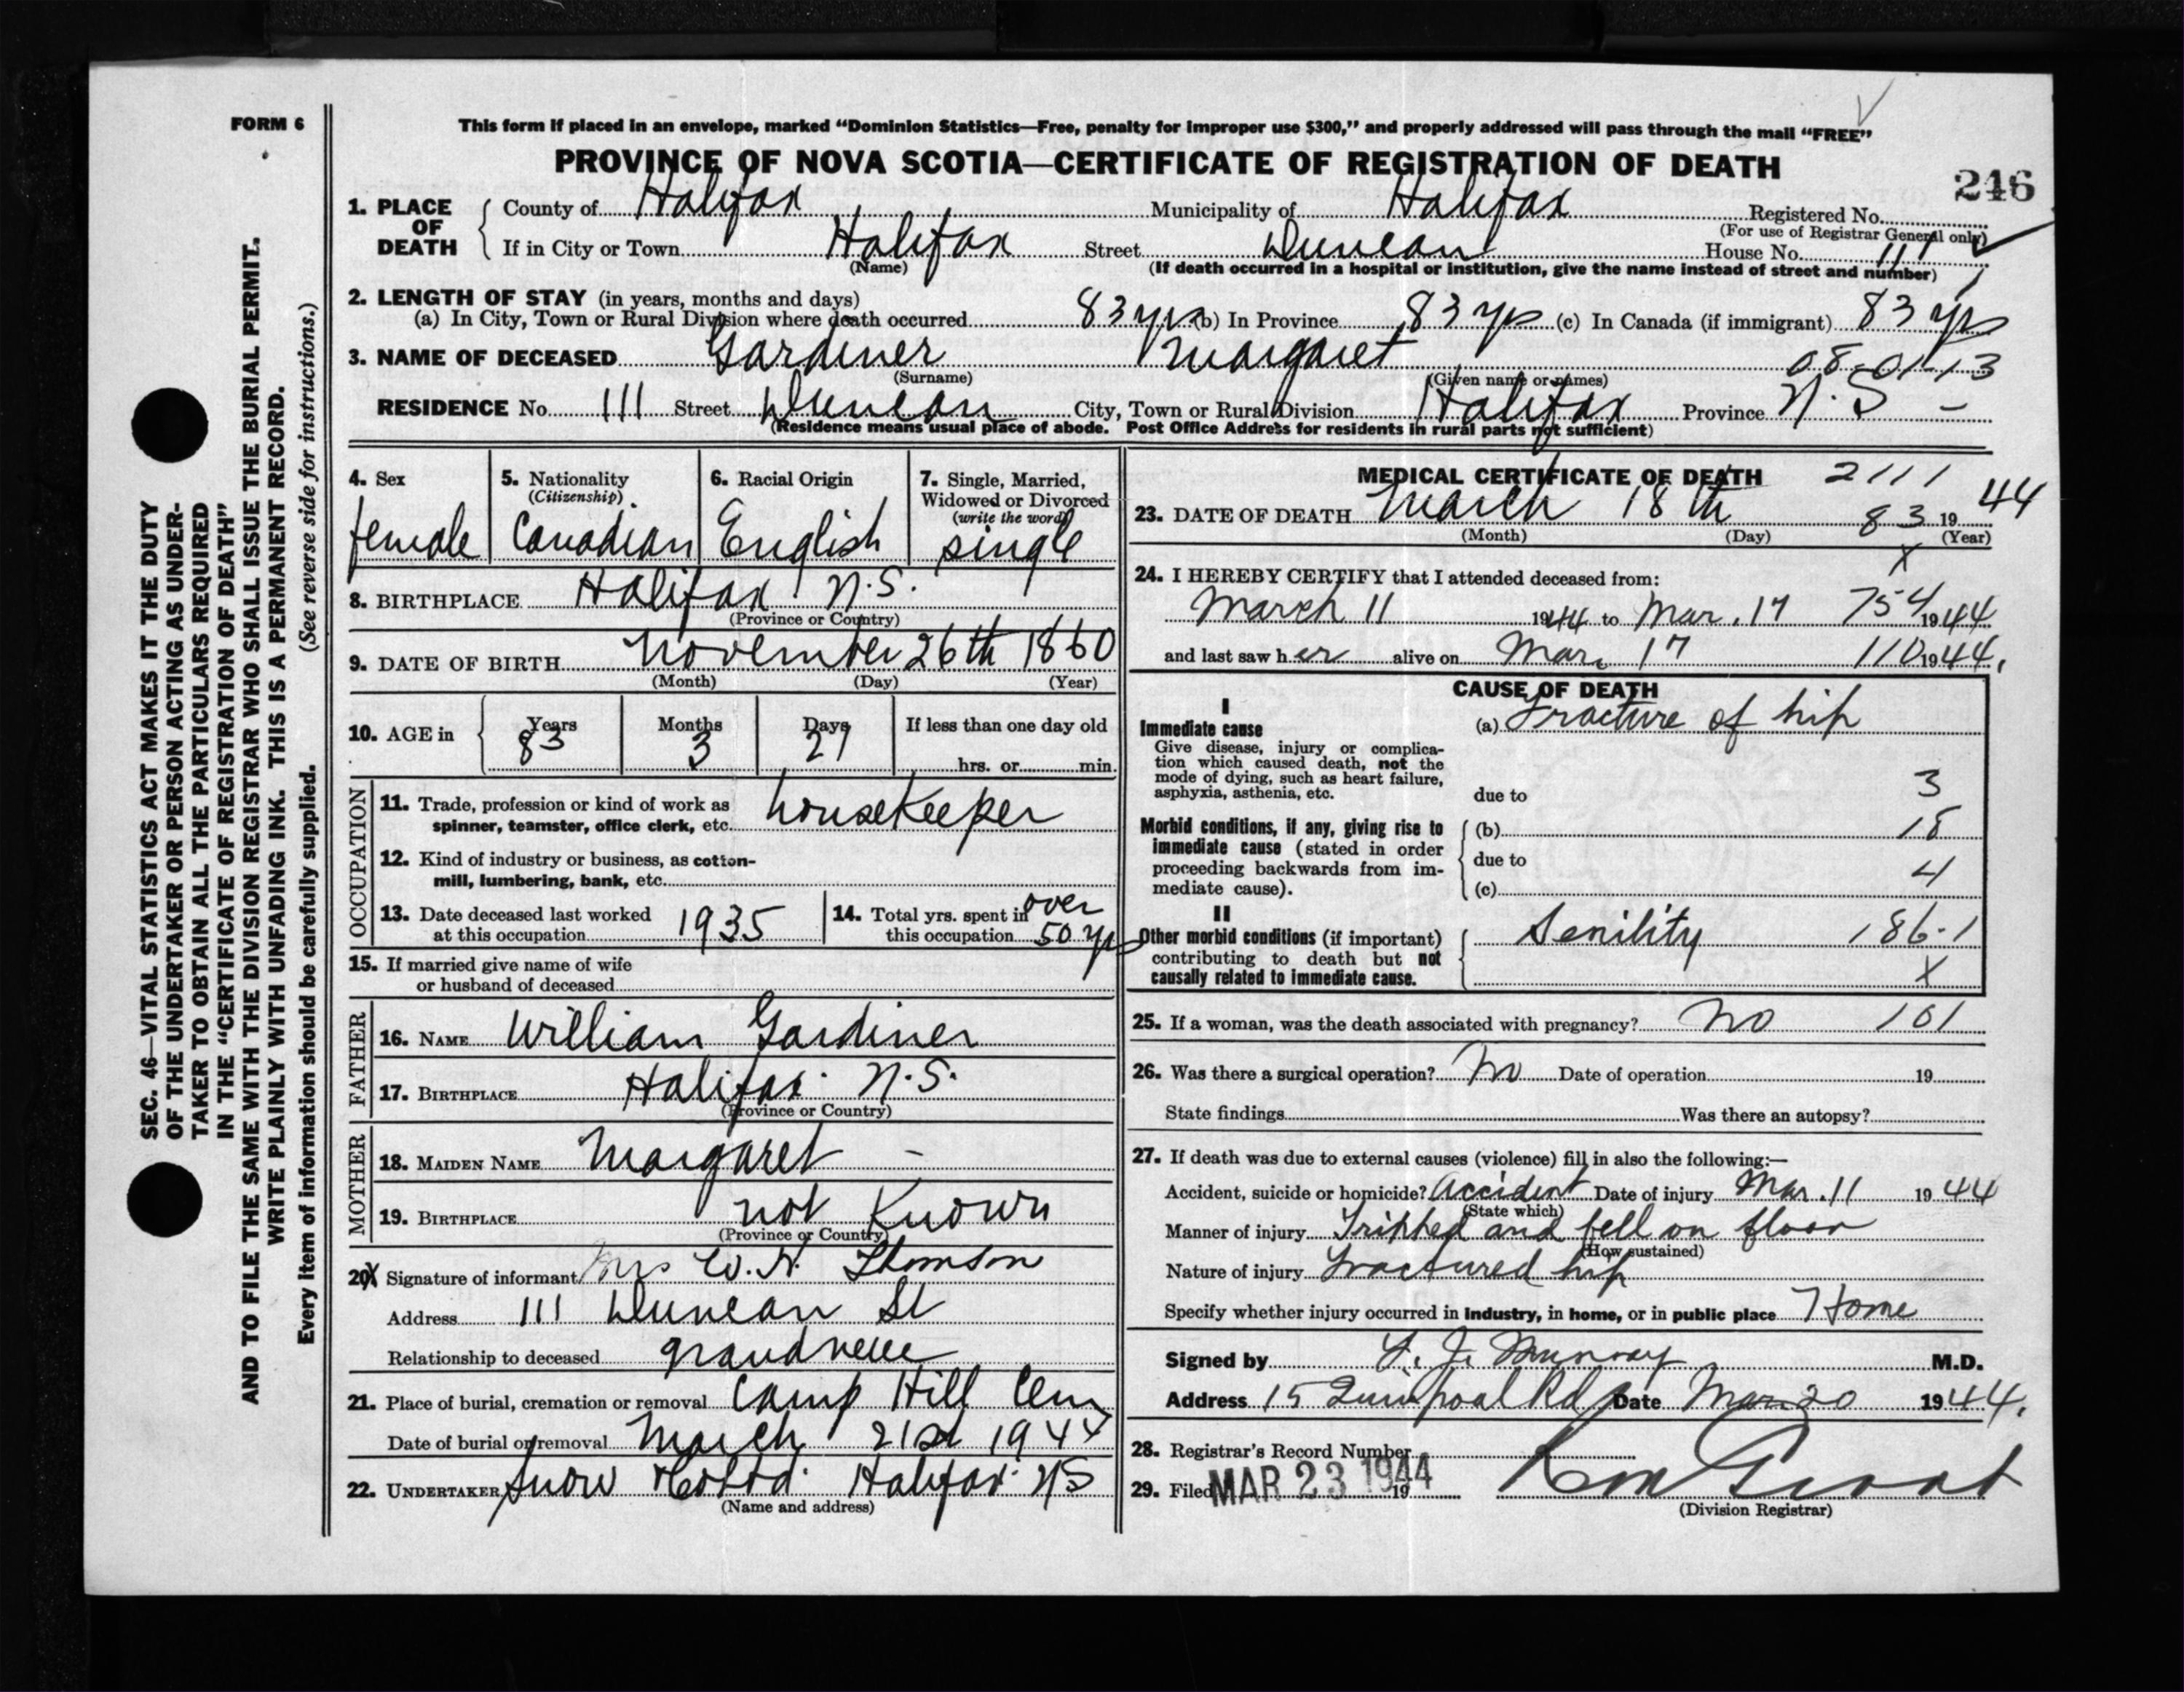 FORM 6
This form if placed in an envelope, marked “Dominion Statistics—Free, penalty for improper use $300,” and properly addressed will pass through the mail “FREE”
PROVINCE OF NOVA SCOTIA—CERTIFICATE OF REGISTRATION OF DEATH
246
1. PLACE OF DEATH County of Halifax Municipality of Halifax Registered No.
(For use of Registrar General only)
If in City or Town Halifax Street Duncan House No. 111
(Name) (If death occurred in a hospital or institution, give the name instead of street and number)
2. LENGTH OF STAY (in years, months and days)
(a) In City, Town or Rural Division where death occurred 83 yrs (b) In Province 83 yrs (c) In Canada (if immigrant) 83 yrs
3. NAME OF DECEASED Gardiner Margaret 08-01-13
(Surname) (Given name or names)
RESIDENCE No. 111 Street Duncan City, Town or Rural Division Halifax Province N.S –
(Residence means usual place of abode. Post Office Address for residents in rural parts not sufficient)
4. Sex female
5. Nationality (Citizenship) Canadian
6. Racial Origin English
7. Single, Married, Widowed or Divorced (write the word) single
8. BIRTHPLACE Halifax N.S.
(Province or Country)
9. DATE OF BIRTH November 26th 1860
(Month) (Day) (Year)
10. AGE in Years 83 Months 3 Days 21 If less than one day old
hrs. or min.
OCCUPATION
11. Trade, profession or kind of work as
spinner, teamster, office clerk, etc. housekeeper
12. Kind of industry or business, as cotton-
mill, lumbering, bank, etc.
13. Date deceased last worked
at this occupation 1935
14. Total yrs. spent in
this occupation over 50 yrs
15. If married give name of wife
or husband of deceased
FATHER
16. NAME William Gardiner
17. BIRTHPLACE Halifax N.S.
(Province or Country)
MOTHER
18. MAIDEN NAME Margaret –
19. BIRTHPLACE not Known
(Province or Country)
20. Signature of informant Mrs W. N. Thomson
Address 111 Duncan St
Relationship to deceased grandneice
21. Place of burial, cremation or removal Camp Hill Cem
Date of burial or removal March 21st 1944
22. UNDERTAKER Snow & Co Ltd. Halifax NS
(Name and address)
MEDICAL CERTIFICATE OF DEATH 2111
23. DATE OF DEATH March 18th 83 1944
(Month) (Day) (Year)
X
24. I HEREBY CERTIFY that I attended deceased from:
March 11 1944 to Mar. 17 754 1944
and last saw her alive on Mar. 17 110 1944.
CAUSE OF DEATH
I
Immediate cause (a) Fracture of hip
Give disease, injury or complica-
tion which caused death, not the
mode of dying, such as heart failure,
asphyxia, asthenia, etc. due to 3
Morbid conditions, if any, giving rise to
immediate cause (stated in order
proceeding backwards from im-
mediate cause).
(b) 18
due to 4
(c)
II
Other morbid conditions (if important)
contributing to death but not
causally related to immediate cause.
Senility 186.1
X
25. If a woman, was the death associated with pregnancy? No 101
26. Was there a surgical operation? No Date of operation 19
State findings Was there an autopsy?
27. If death was due to external causes (violence) fill in also the following:—
Accident, suicide or homicide? Accident Date of injury Mar. 11 1944
(State which)
Manner of injury Tripped and fell on floor
(How sustained)
Nature of injury Fractured hip
Specify whether injury occurred in industry, in home, or in public place Home
Signed by Murray M.D.
Address 15 Quinpool Rd Date Mar. 20 1944.
28. Registrar's Record Number
29. Filed MAR 23 1944 19
(Division Registrar)
SEC. 46—VITAL STATISTICS ACT MAKES IT THE DUTY
OF THE UNDERTAKER OR PERSON ACTING AS UNDER-
TAKER TO OBTAIN ALL THE PARTICULARS REQUIRED
IN THE “CERTIFICATE OF REGISTRATION OF DEATH”
AND TO FILE THE SAME WITH THE DIVISION REGISTRAR WHO SHALL ISSUE THE BURIAL PERMIT.
WRITE PLAINLY WITH UNFADING INK. THIS IS A PERMANENT RECORD.
Every item of information should be carefully supplied. (See reverse side for instructions.)